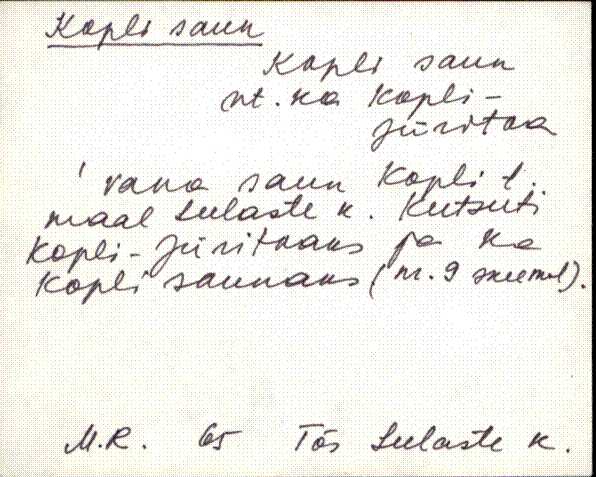 Kopli saun
Kopli saun
vt. ka Kopli-
Jüritoa
' vana saun Kopli t.
maal Seelaste k. Kutsuti
Kopli-Jüritoaks ja ka
Kopli saunaks (nr. 9 skeemil).
M.R. 65 Tõs Seelaste k.